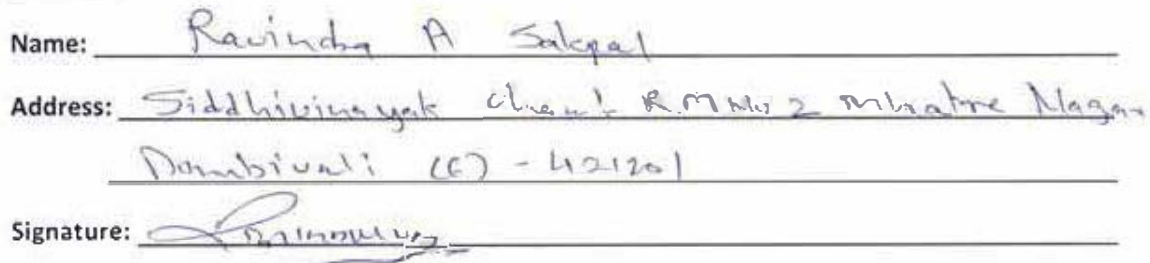 Name: Ravindra A Sakpal
Address: Siddhivinayak R.M No 2 Mhatre Nagar
Dombivali (E) - 421201
Signature: